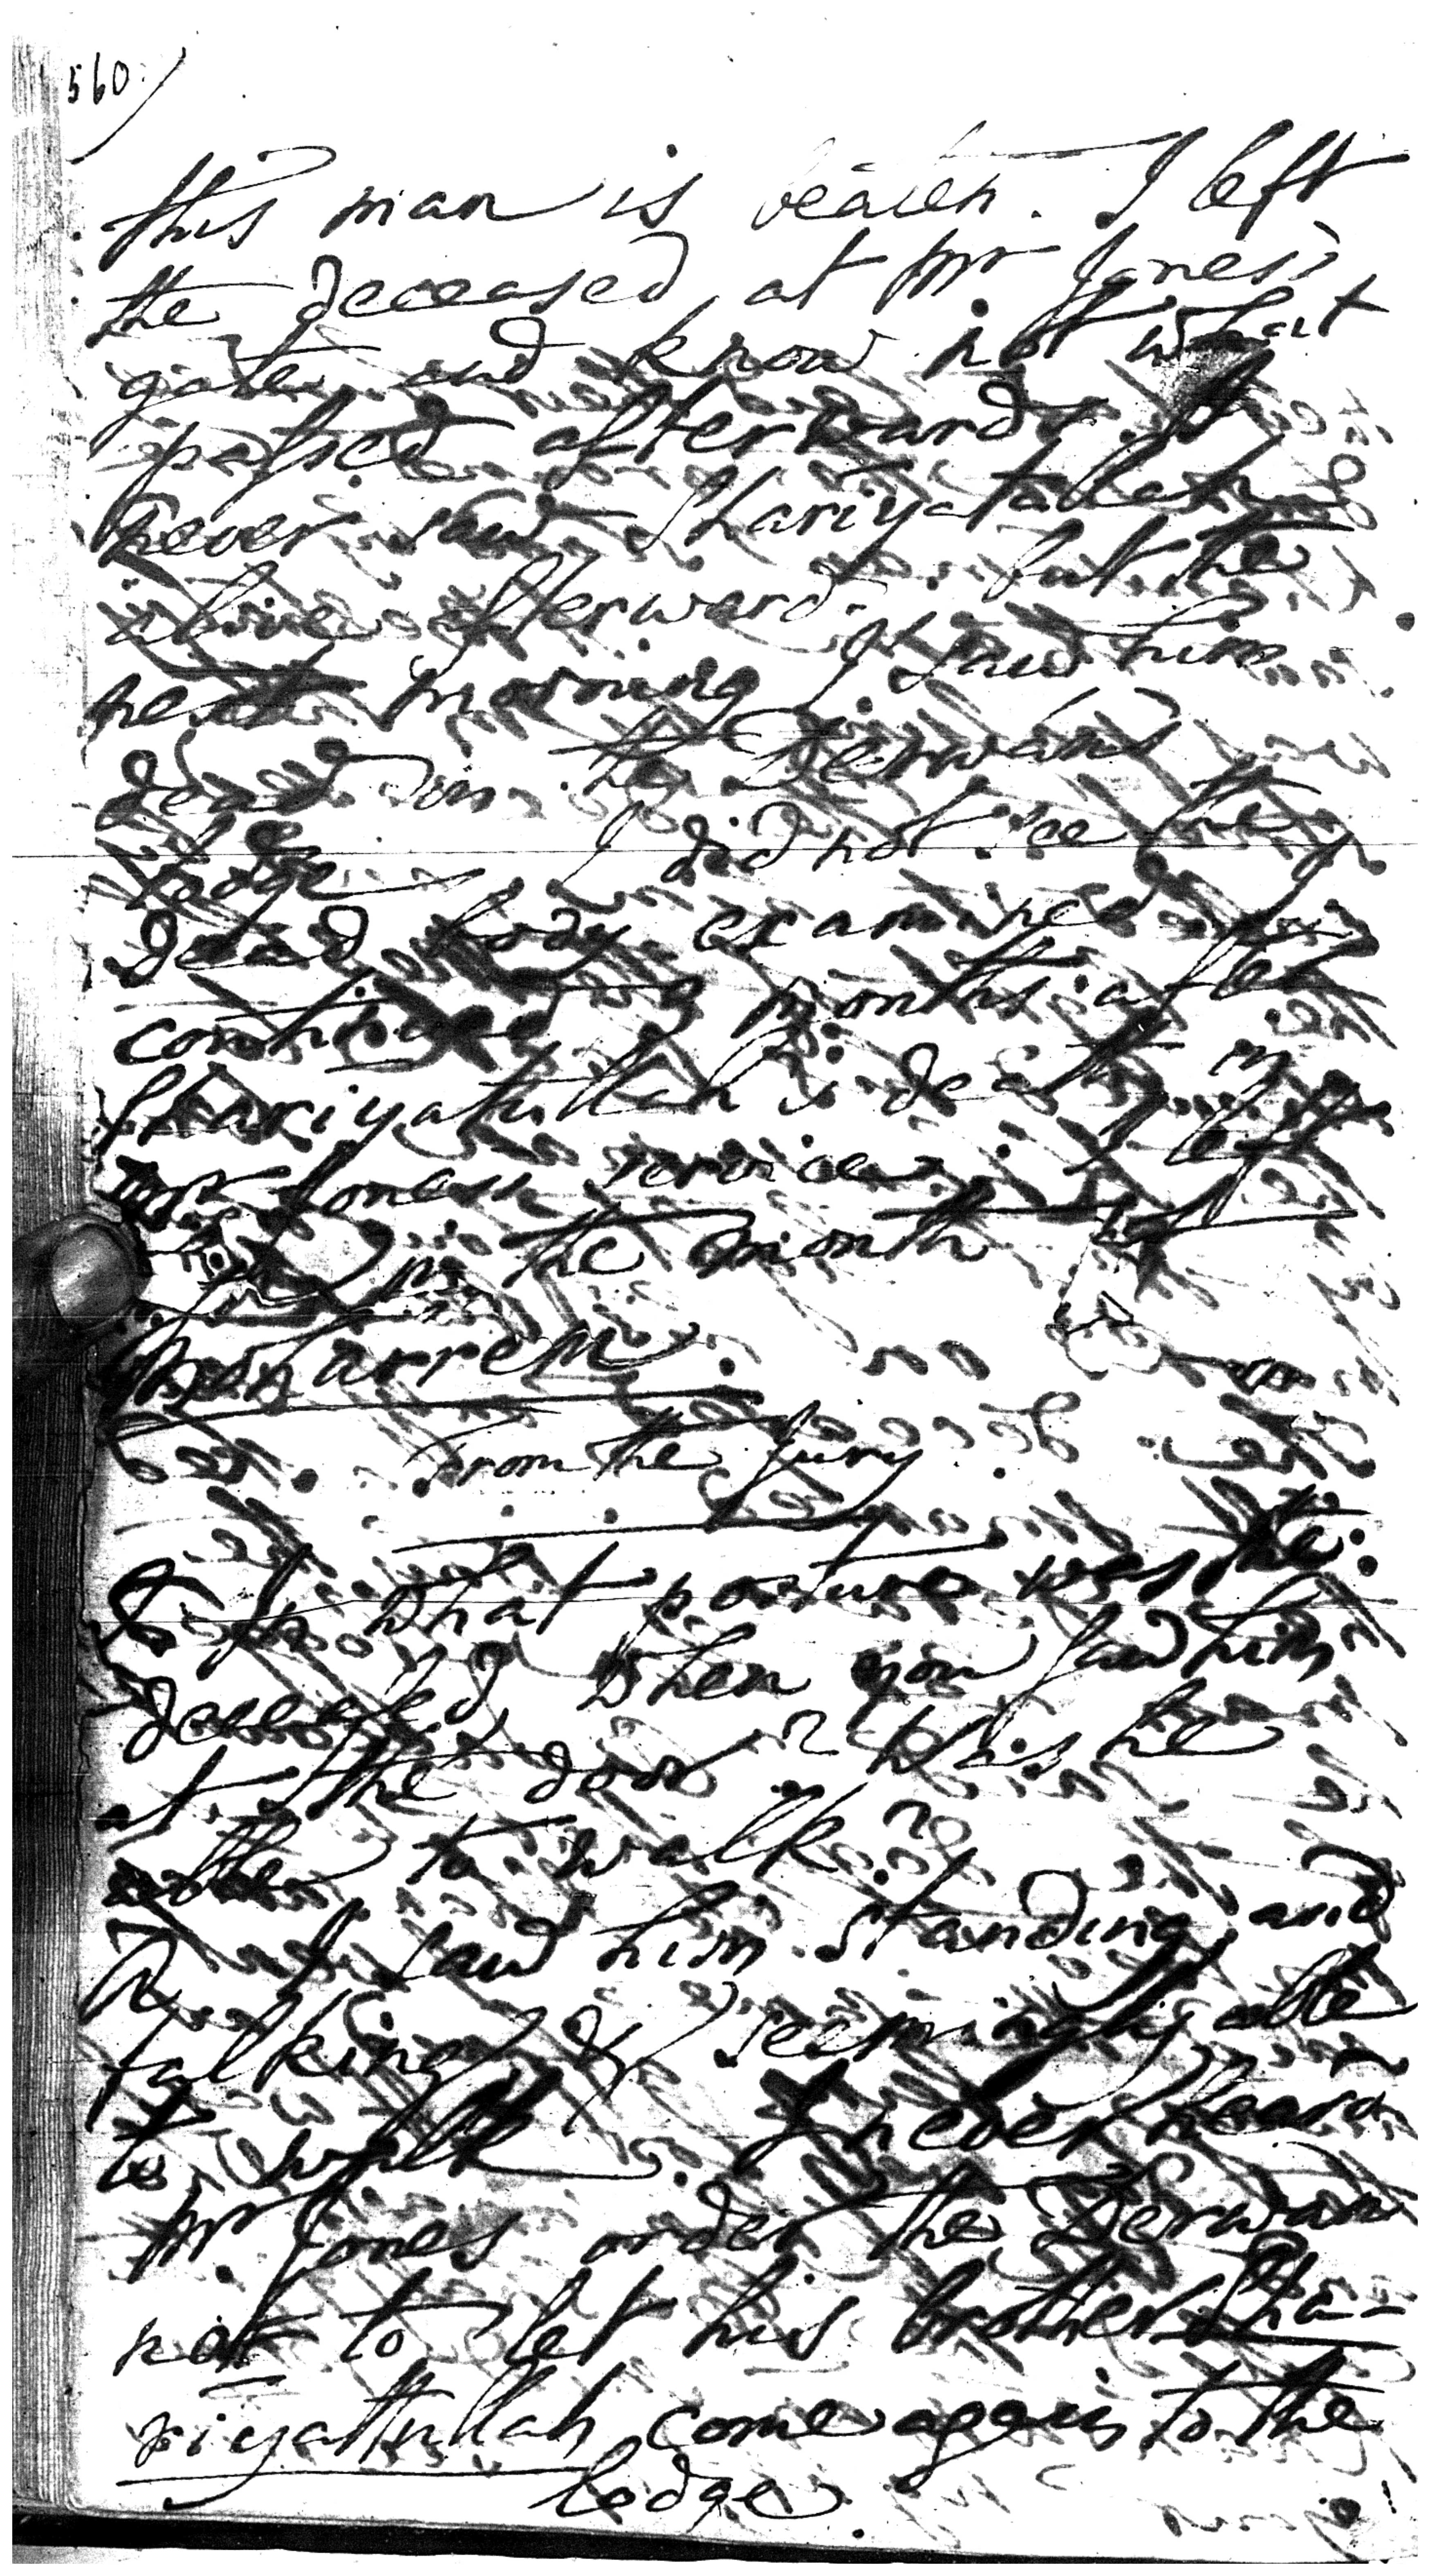 560
this man is beaten. I left
the deceased, at Mr Jones's
gate and know not what
passed afterwards. I
never saw Shariyatullah
alive afterward. but the
next morning I saw him
dead in the Derwan's
lodge. I did not see the
dead body examined. I
continued months after
Shariyatullah's death in
Mr Jones's service. I left
in the month of
Moharrem.
From the Jury.
Q In what posture was the
deceased, when you saw him
at the door? Was he
able to walk?
A I saw him standing and
talking & seemingly able
to walk. I never heard
Mr Jones order the Derwan
not to let his brother Sha-
riyattullah come again to the
lodge.